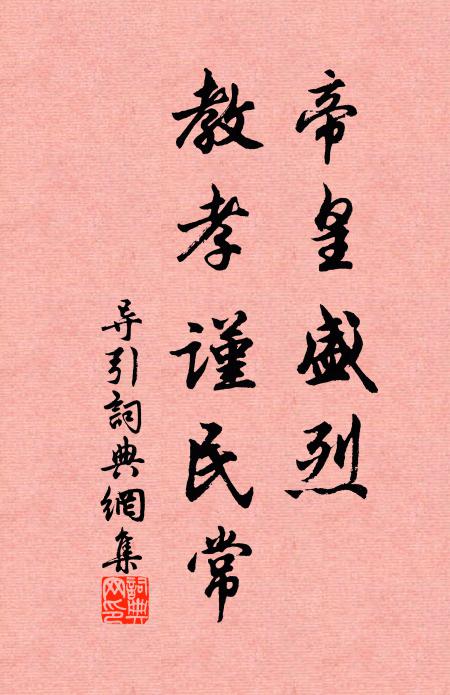 帝皇盛烈
教孝謹民常
导引詞典網集
詞典
网印